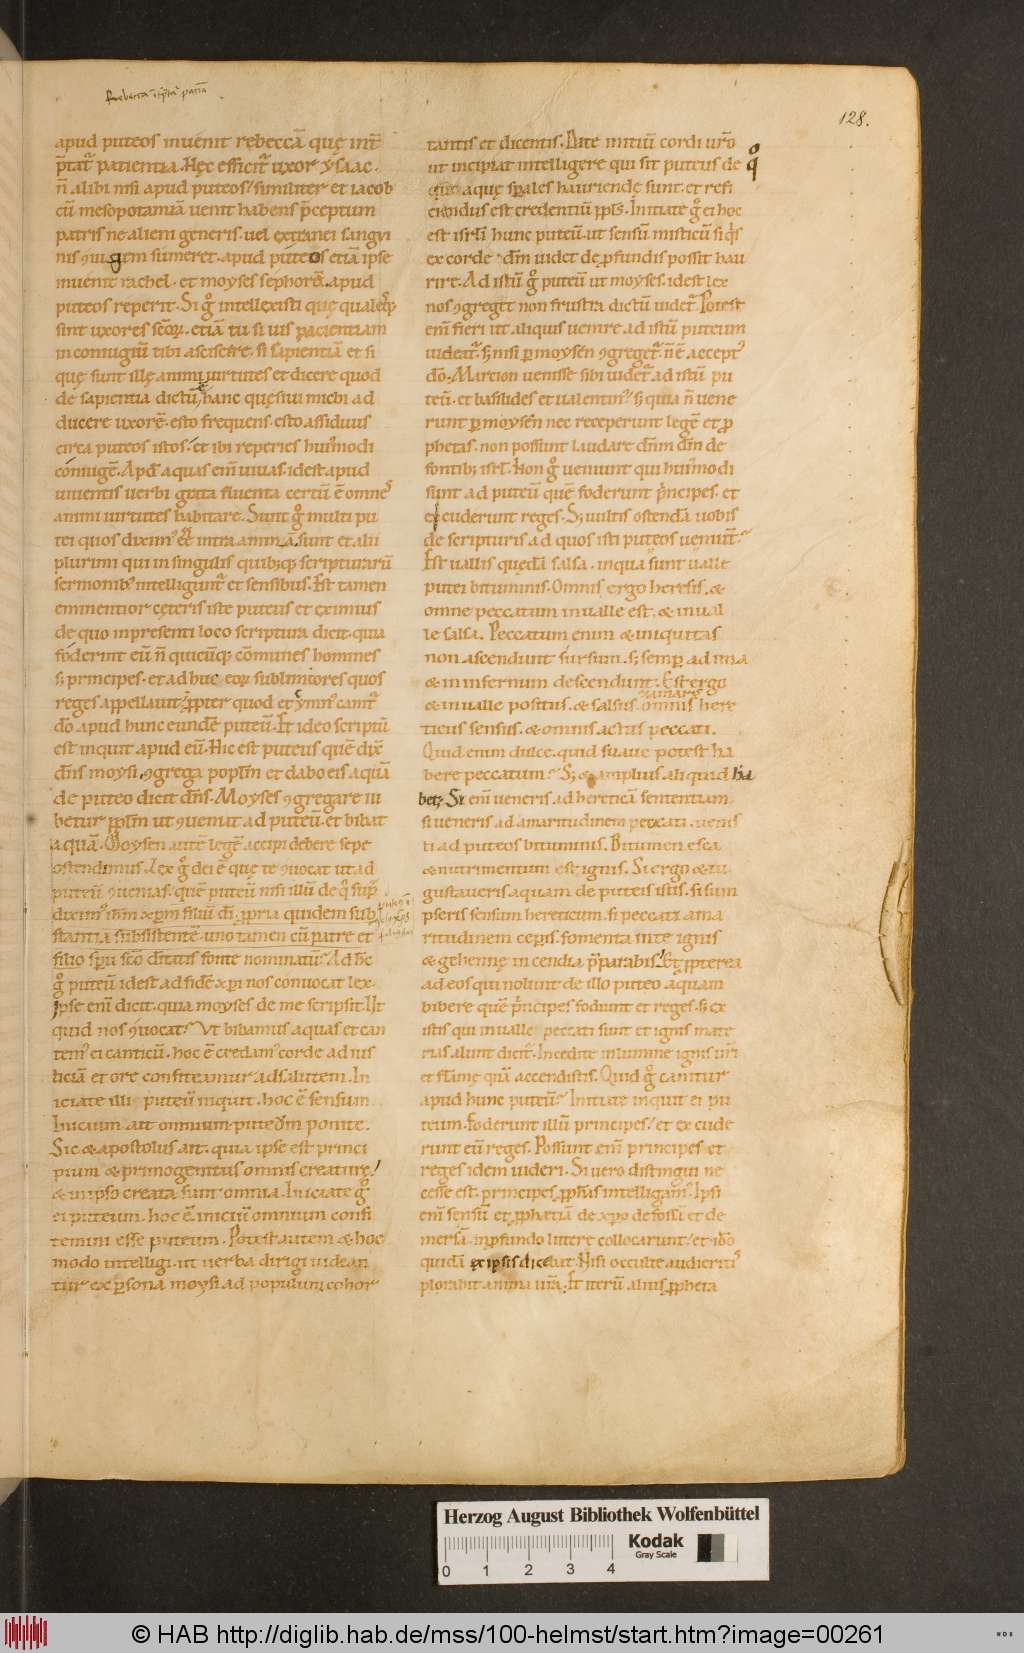 Rebecca int̄p̄tat᷑ patiētia
128.
apud puteos inuenit rebeccā quę int̄
p̄tat᷑ patientia. Hęc efficit᷑ uxor ysaac.
n̄ alibi nisi apud puteos. similiter et iacob
cū mesopotamiā uenit habens p̄ceptum
patris ne alieni generis. uel extranei sangui
nis ꝯiugem sumeret. apud puteos etiā ipse
inuenit rachel. et moyses sephorā. apud
puteos reperit. Si gͦ intellexisti quę qualesq;
sint uxores scōꝝ. etiā tu si uis pacientiam
in coniugiū tibi asciscere. si sapientiā et si
quę sunt illę animi uirtutes et dicere quod
de sapientia dictū ē hanc quęsiui michi ad
ducere uxorē. esto frequens. esto assiduus
circa puteos istos. et ibi reperies hui᷒modi
coniugē. Apd̄ aquas enī uiuas. idest apud
uiuentis uerbi gutta fluenta certū ē omnes
animi uirtutes habitare. Sunt gͦ multi pu
tei quos diximꝰ et᷑ intra animā sunt et alii
plurimi qui in singulis quibusq; scripturarū
sermonibꝰ intelligunt᷑ et sensibus. Est tamen
eminentior cęteris iste puteus et eximius
de quo in presenti loco scriptura dicit. quia
foderint eū n̄ quicūq; cōmunes homines
s; principes. et adhuc eoꝝ sublimiores quos
reges appellauit. ꝓpter quod et ymnꝰ canit᷑
dō apud hunc eundē puteū. Et ideo scriptū
est inquit apud eū. Hic est puteus quē dix̄
dn̄s moysi. ꝯgrega popłm et dabo eis aquā
de puteo dicit dn̄s. Moyses ꝯgregare iu
betur ppłm ut ꝯueniat ad puteū. et bibat
aquā. Moysen autē legē accipi debere sepe
ostendimus. Lex gͦ dei ē quę te ꝯuocat ut ad
puteū ꝯuenias. quē puteū nisi illū de qͦ sup̄
diximꝰ ihm̄ xp̄m filiū dī. ꝓpria quidem sub
stantia subsistentē. uno tamen cū patre et
filio sp̄u scō dītatis fonte nominatū. Ad hc̄
gͦ puteū idest ad fidē xp̄i nos conuocat lex.
Ipse enī dicit. quia moyses de me scripsit. Ut
quid nos ꝯuocat? Ut bibamus aquas et can
temꝰ ei canticū. hoc ē credamꝰ corde ad ius
ticiā et ore confiteamur ad salutem. In
iciate illi puteū inquit. hoc ē sensum
Inicium ait omnium puteū dm̄ ponite.
Sic & apostolus ait. quia ipse est princi
pium & primogenitus omnis creaturę.
& in ipso creata sunt omnia. Iniciate gͦ
ei puteum. hoc ē iniciū omnium confi
temini esse puteum. Potest autem & hoc
modo intelligi. ut uerba dirigi uidean
tur ex psona moysi ad populum cohor
tantis et dicentis. Date initiū cordi ur̄o
ut incipiat intelligere qui sit puteus de qͦ
quę aquę sp̄ales hauriendę sunt. et refi
ciendus est credentiū ppłs. Initiate gͦ ei hoc
est isrłi hunc puteū. ut sensū misticū siqͥs
ex corde dm̄ uidet de ꝓfundis possit hau
rire. Ad istū gͦ puteū ut moyses. idest lex
nos ꝯgreget non frustra dictū uidet᷑. Potest
enī fieri ut aliquis uenire ad istū puteum
uideat᷑. s; nisi p moysen ꝯgreget᷑ n̄ ē acceptꝰ
dō. Marcion uenisse sibi uidet᷑ ad istū pu
teū. et basilides et ualentinꝰ. s; quia n̄ uene
runt p moysen nec receperunt legē et ꝓ
phetas. non possunt laudare dn̄m dm̄ de
fontibꝰ isrł. Non gͦ ueniunt qui hui᷒modi
sunt ad puteū quē foderunt prīncipes. et
exciderunt reges. S; uultis ostendā uobis
de scripturis ad quos isti puteos ueniunt.
Est uallis quędā salsa. in qua sunt ualle
putei bituminis. Omnis ergo heresis. &
omne peccatum in ualle est. & in ual
le salsa. Peccatum enim & iniquitas
non ascendunt sursum. s; semp ad ima
& in infernum descendunt. Est ergo
amarꝰ
& in ualle positus. & salsus omnis here
ticus sensus. & omnis actus peccati.
Quid enim dulce. quid suaue potest ha
bere peccatum? S; & amplius aliquid ha
bet; Si enī ueneris ad hereticā sententiam.
si ueneris ad amaritudinem peccati. uenis
ti ad puteos bituminis. Bitumen esca
& nutrimentum est ignis. Si ergo & tu
gustaueris aquam de puteis istis. si sum
pseris sensum hereticum. si peccati ama
ritudinem ceperis. fomenta in te ignis
& gehennę incendia p̄parabis. Et ꝓpterea
ad eos qui nolunt de illo puteo aquam
bibere quē prīncipes fodiunt et reges. s; ex
istis qui in ualle peccati sunt et ignis mate
rias alunt dicit᷑. Incedite in lumine ignis ur̄i
et flāmę quā accendistis. Quid gͦ canitur
apud hunc puteū? Initiate inquit ei pu
teum. Foderunt illū principes. et excide
runt eū reges. Possunt enī principes et
reges idem uideri. Si uero distingui ne
cesse est. principes ꝓphas intelligamꝰ. Ipsi
enī sensū et ꝓphetiā de xp̄o defossū et de
mersū in ꝓfundo littere collocarunt. et ideo
quidā ex ipsis dicebat. Nisi occulte audieritis
plorabit anima ur̄a. Et iterū alius ꝓpheta
Herzog August Bibliothek Wolfenbüttel
Kodak
Gray Scale
0 1 2 3 4
© HAB http://diglib.hab.de/mss/100-helmst/start.htm?image=00261